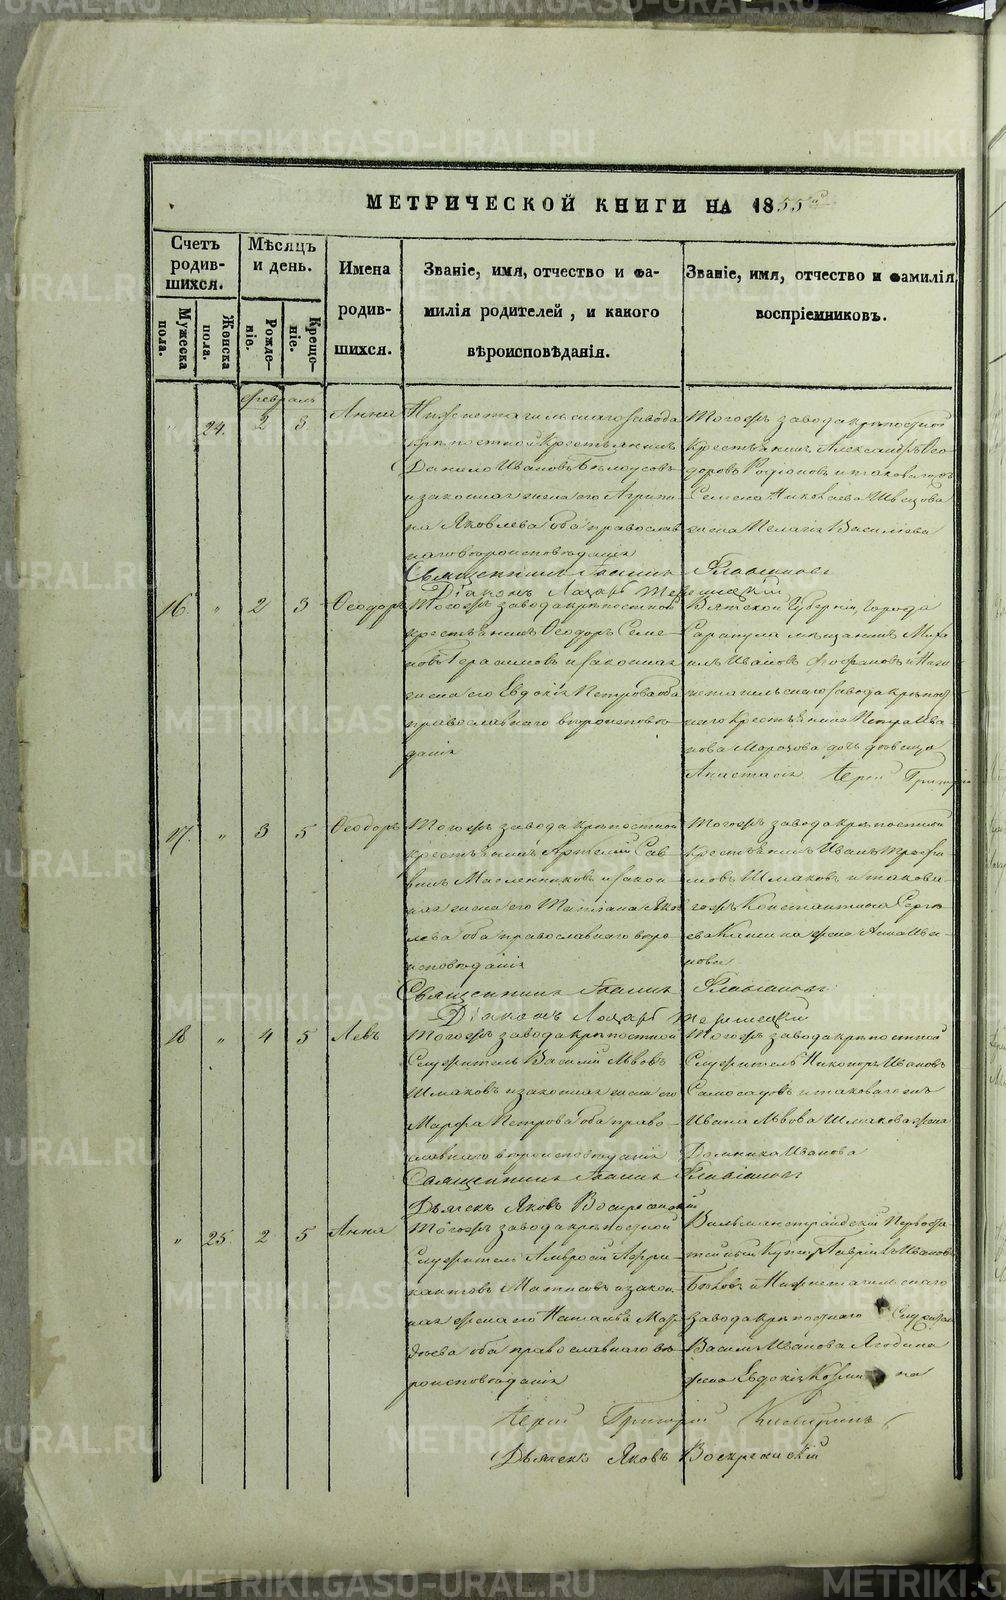 МЕТРИЧЕСКОЙ КНИГИ НА 1855
Счетъ родив-шихся.
Мужеска пола.
Женска пола.
Мѣсяцъ и день.
Рожде-ніе.
Креще-ніе.
Имена родив-шихся.
Званіе, имя, отчество и фа-
милія родителей, и какого
вѣроисповѣданія.
Званіе, имя, отчество и фамилія
воспріемниковъ.
февраль
24. 2 3 Анна
Нижнетагильскаго завода
крѣпостной крестьянинъ
Данило Ивановъ Бѣлоусовъ
и законная жена его Агрипи-
на Яковлева оба православ
наго вѣроисповѣданія
Тогожъ завода крѣпостной
крестьянинъ Александръ Ѳео-
доровъ Родіоновъ и таковагожъ
Семена Николаева Швецова
жена Пелагія Василіева
Священникъ Флавіановъ
Діаконъ Лазарь
16. " 2 3 Ѳеодоръ
Тогожъ завода крѣпостной
крестьянинъ Ѳеодоръ Семе-
новъ Герасимовъ и законная
жена его Евдокія Петрова оба
православнаго вѣроисповѣ-
данія
Вятской Губерніи города
Сарапула мѣщанинъ Миха-
илъ Ивановъ и Ниж-
нетагильскаго завода крѣпост
наго крестьянина Петра Ива
нова Морозова дочь дѣвица
Анастасія Іерей Григорій
17. " 3 5 Ѳеодоръ
Тогожъ завода крѣпостной
крестьянинъ Артемій Сав-
винъ Масленниковъ и закон-
ная жена его Татіана Яков
лева оба православнаго вѣро-
исповѣданія
Тогожъ завода крѣпостной
крестьянинъ Иванъ Трофи-
мовъ Шмаковъ и таковa-
гожъ Константина Серге-
ева жена Анна Ива-
нова
Священникъ Флавіановъ
Діаконъ Лазарь
18 " 4 5 Левъ
Тогожъ завода крѣпостной
Служитель Василій Львовъ
Шмаковъ и законная жена его
Марфа Петрова оба право-
славнаго вѣроисповѣданія
Тогожъ завода крѣпостной
Служитель Никоноръ Ивановъ
и таковагожъ
Ивана Львова Шмакова жена
Домника Иванова
Священникъ Флавіановъ
Дьячекъ Яковъ Воскресенскій
" 25. 2 5 Анна
Тогожъ завода крѣпостной
Служитель Амвросій Афри-
кановъ и закон-
ная жена его Наталья Мат-
ѳеева оба православнаго вѣ-
роисповѣданія
Вильманстрандскій Первоста-
тейный Купецъ Гавріилъ Ивановъ
Быковъ и Нижнетагильскаго
завода крѣпостнаго Служителя
Василія Иванова Ягодина
жена Евдокія
Іерей Григорій
Дьячекъ Яковъ Воскресенскій
METRIKI.GASO-URAL.RU